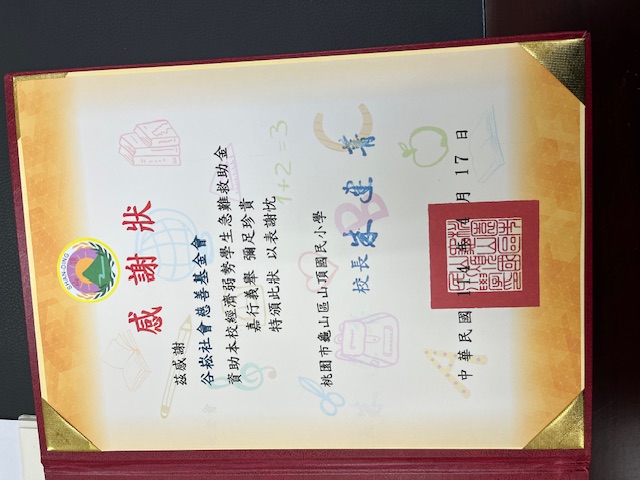 SHAN-DING
感謝狀
茲感謝
谷崧社會慈善基金會
資助本校經濟弱勢學生急難救助金
嘉行義舉 彌足珍貴
特頒此狀 以表謝忱
1+2=3
桃園市龜山區山頂國民小學
校長 朱 菁
中華民國 114 年 4 月 17 日